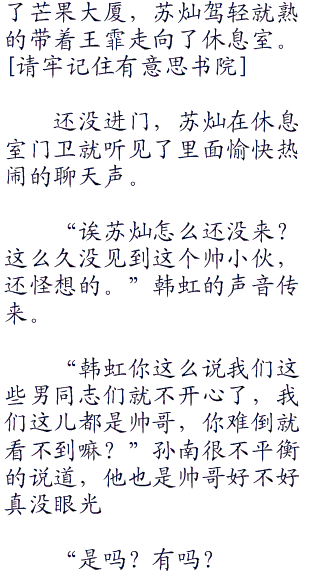 了芒果大厦，苏灿驾轻就熟
的带着王霏走向了休息室。
[请牢记住有意思书院]
还没进门，苏灿在休息
室门卫就听见了里面愉快热
闹的聊天声。
“诶苏灿怎么还没来？
这么久没见到这个帅小伙，
还怪想的。”韩虹的声音传
来。
“韩虹你这么说我们这
些男同志们就不开心了，我
们这儿都是帅哥，你难倒就
看不到嘛？”孙南很不平衡
的说道，他也是帅哥好不好
真没眼光
“是吗？有吗？